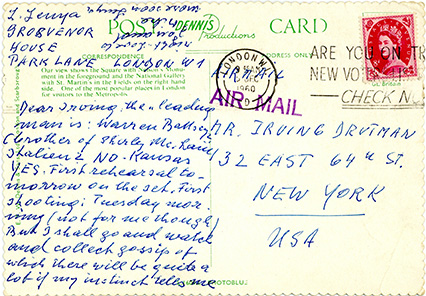 L. Lenya
GROSVENOR
HOUSE
PARK LANE LONDON W1
POST CARD
DENNIS
Productions
CORRESPONDENCE
ADDRESS ONLY
Our view shows the Square with Nelson's Monu-
ment in the foreground and the National Gallery
with St. Martin's in the Fields on the right hand
side. One of the most popular places in London
for visitors to the Metropolis.
Dear Irving, the "leading
man is: Warren Battey
(brother of Shirley Mc. Laine)
Italien? NO. Kansas
YES. First rehearsal to-
morrow on the set. First
shooting: Tuesday mor-
ning (not for me though)
But I shall go and watch
and collect gossip of
which there will be quite a
lot if my instinct tells me
LONDON W.1
DEC
1960
ARE YOU ON
NEW VO
CHECK N
AIR MAIL
AIR MAIL
MR. IRVING DRUTMAN
32 EAST 64th ST.
NEW YORK
USA